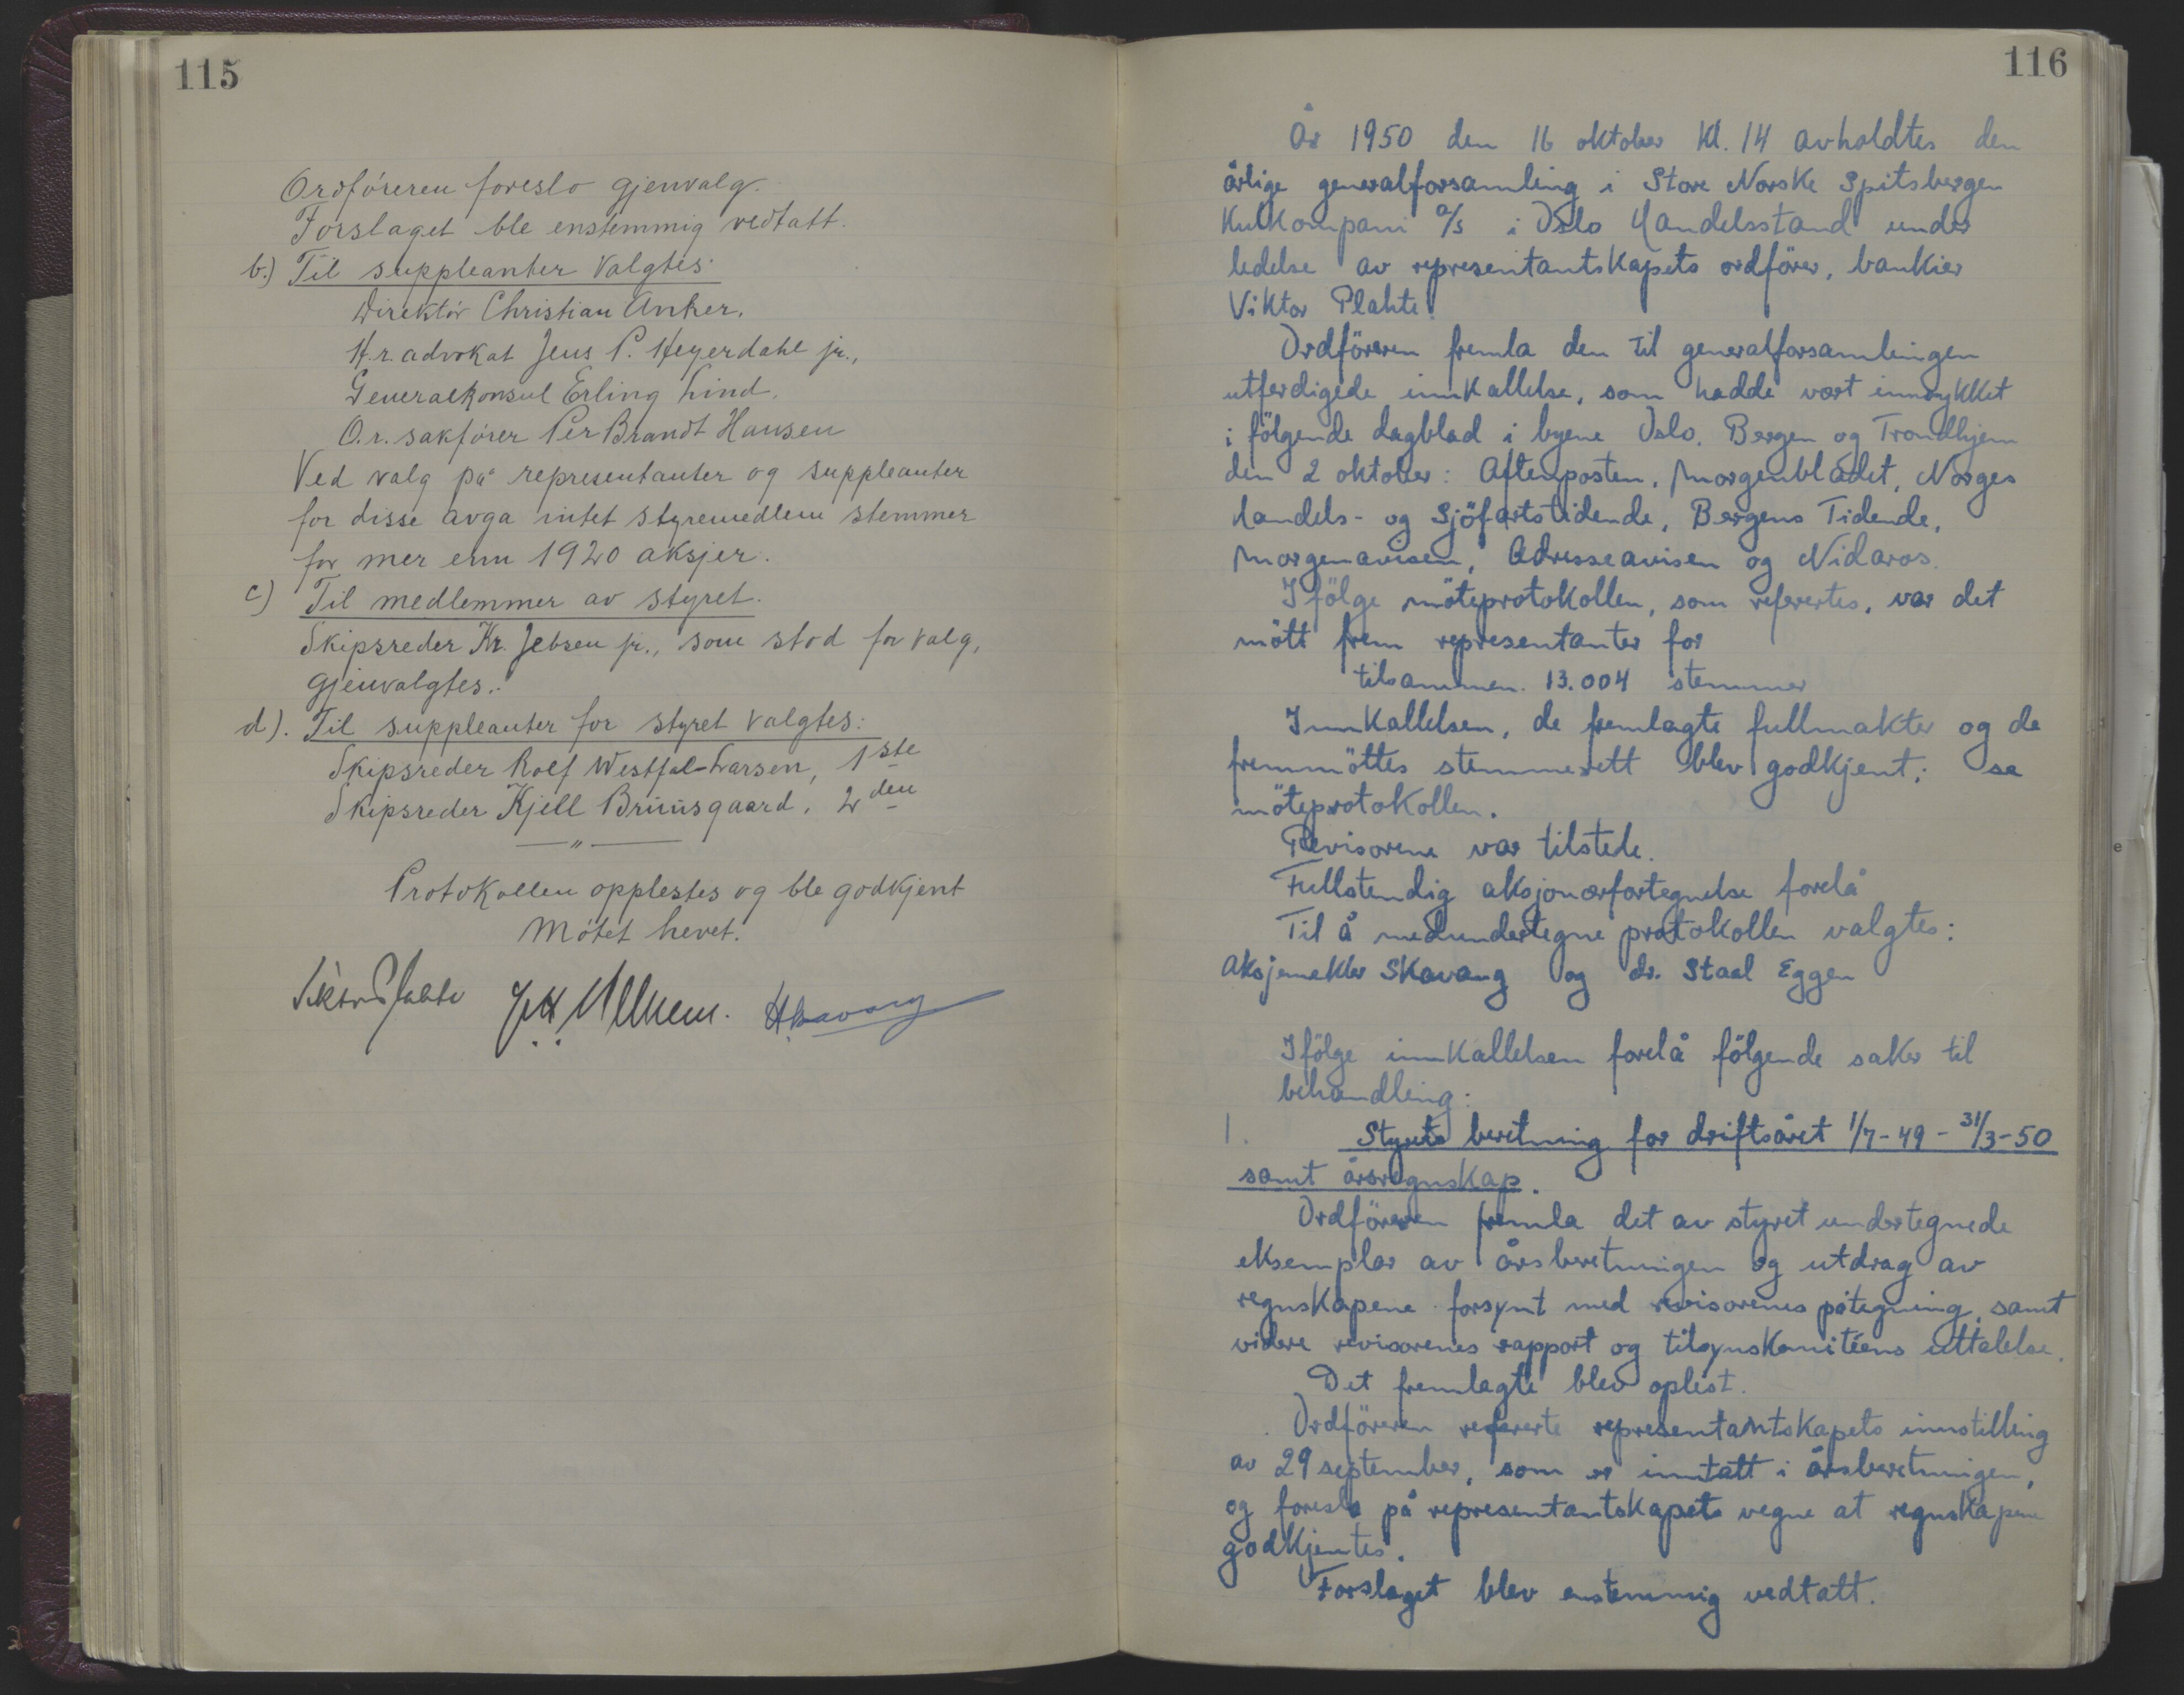 115
Ordføreren foreslo gjenvalg.
Forslaget ble enstemmig vedtatt.
b.) Til suppleanter valgtes:
Direktør Christian Anker,
H.r. advokat Jens P. Heyerdahl jr.,
Generalkonsul Erling Lind,
O.r. sakfører Per Brandt Hansen
Ved valg på representanter og suppleanter
for disse avga intet styremedlem stemmer
for mer enn 1920 aksjer.
c) Til medlemmer av styret.
Skipsreder Kr. Jebsen jr., som stod for valg,
gjenvalgtes.
d). Til suppleanter for styret valgtes:
Skipsreder Rolf Westfal-Larsen, 1ste
Skipsreder Kjell Bruusgaard, 2den
— " —
Protokollen opplestes og ble godkjent
Møtet hevet.
Viktor Plahte HSkavang
116
År 1950 den 16 oktober kl. 14 avholdtes den
årlige generalforsamling i Store Norske Spitsbergen
Kulkompani A/S i Oslo Handelsstand under
ledelse av representantskapets ordförer, bankier
Viktor Plahte.
Ordföreren fremla den til generalforsamlingen
utferdigede innkallelse, som hadde vært innrykket
i fölgende dagblad i byene Oslo, Bergen og Trondhjem
den 2 oktober: Aftenposten, Morgenbladet, Norges
Handels- og Sjöfartstidende, Bergens Tidende,
Morgenavisen, Adresseavisen og Nidaros.
Ifölge möteprotokollen, som refertes, var det
mött frem representanter for
tilsammen. 13.004 stemmer
Innkallelsen, de fremlagte fullmakter og de
fremmöttes stemmerett blev godkjent; se
möteprotokollen.
Revisorene var tilstede.
Fullstendig aksjonærfortegnelse forelå
Til å medundertegne protokollen valgtes:
Aksjemekler Skavang og dr. Staal Eggen
Ifölge innkallelsen forelå fölgende saker til
behandling:
1. Styrets beretning for driftsåret 1/7-49 - 31/3-50
samt årsregnskap.
Ordföreren fremla det av styret undertegnede
eksemplar av årsberetningen og utdrag av
regnskapene forsynt med revisorenes påtegning, samt
videre revisorenes rapport og tilsynskomitéens uttalelse.
Det fremlagte blev oplest.
Ordföreren refererte representantskapets innstilling
av 29 september, som er inntatt i årsberetningen,
og foreslo på representantskapets vegne at regnskapene
godkjentes.
Forslaget blev enstemmig vedtatt.